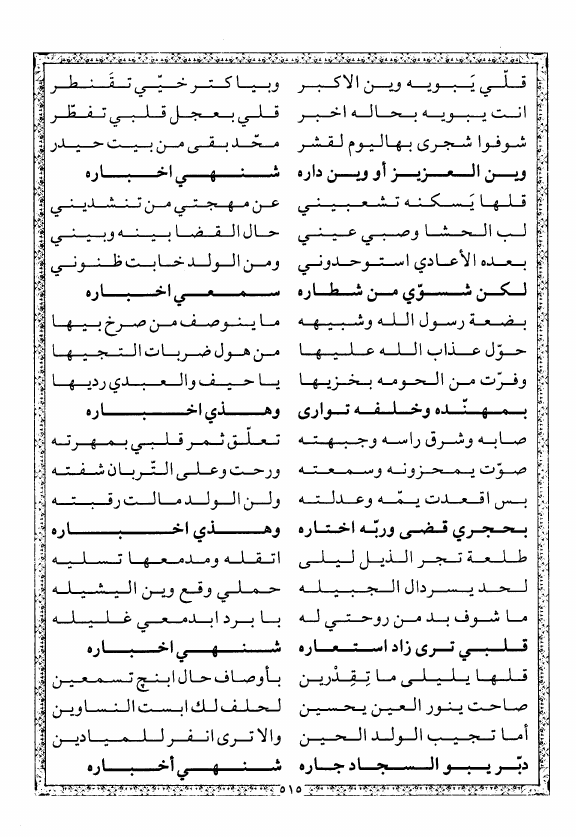 قلّي يَبويه وين الاكبر وبياكتر خيّي تقَنطر
انت يبويه بحاله اخبر قلي بعجل قلبي تفطّر
شوفوا شجرى بهاليوم لقشر محّد بقى من بيت حيدر
وين العزيز أو وين داره شنهي اخباره
قلها يَسكنه تشعبيني عن مهجتي من تنشديني
لب الحشا وصبي عيني حال القضا بينه وبيني
بعده الأعادي استوحدوني ومن الولد خابت ظنوني
لكن شسوّي من شطاره سمعي اخباره
بضعة رسول الله وشبيهه ما ينوصف من صرخ بيها
حوّل عذاب الله عليها من هول ضربات التجيها
وفرّت من الحومه بخزيها يا حيف والعبدي رديها
بمهنّده وخلفه توارى وهذي اخباره
صابه وشرق راسه وجبهته تعلّق ثمر قلبي بمهرته
صوّت يمحزونه وسمعته ورحت وعلى التّربان شفته
بس اقعدت يمّه وعدلته ولن الولد مالت رقبته
بحجري قضى وربّه اختاره وهذي اخباره
طلعة تجر الذيل ليلى اتقله ومدمعها تسليه
لحد يسردال الجبيله حملي وقع وين اليشيله
ما شوف بد من روحتي له با برد ابدمعي غليله
قلبي ترى زاد استعاره شنهي اخباره
قلها يليلى ما تِقِدْرين بأوصاف حال ابنچ تسمعين
صاحت ينور العين يحسين لحلف لك ابست النساوين
أما تجيب الولد الحين والا ترى انفر للميادين
دبّر يبو السجاد چاره شنهي أخباره
٥١٥